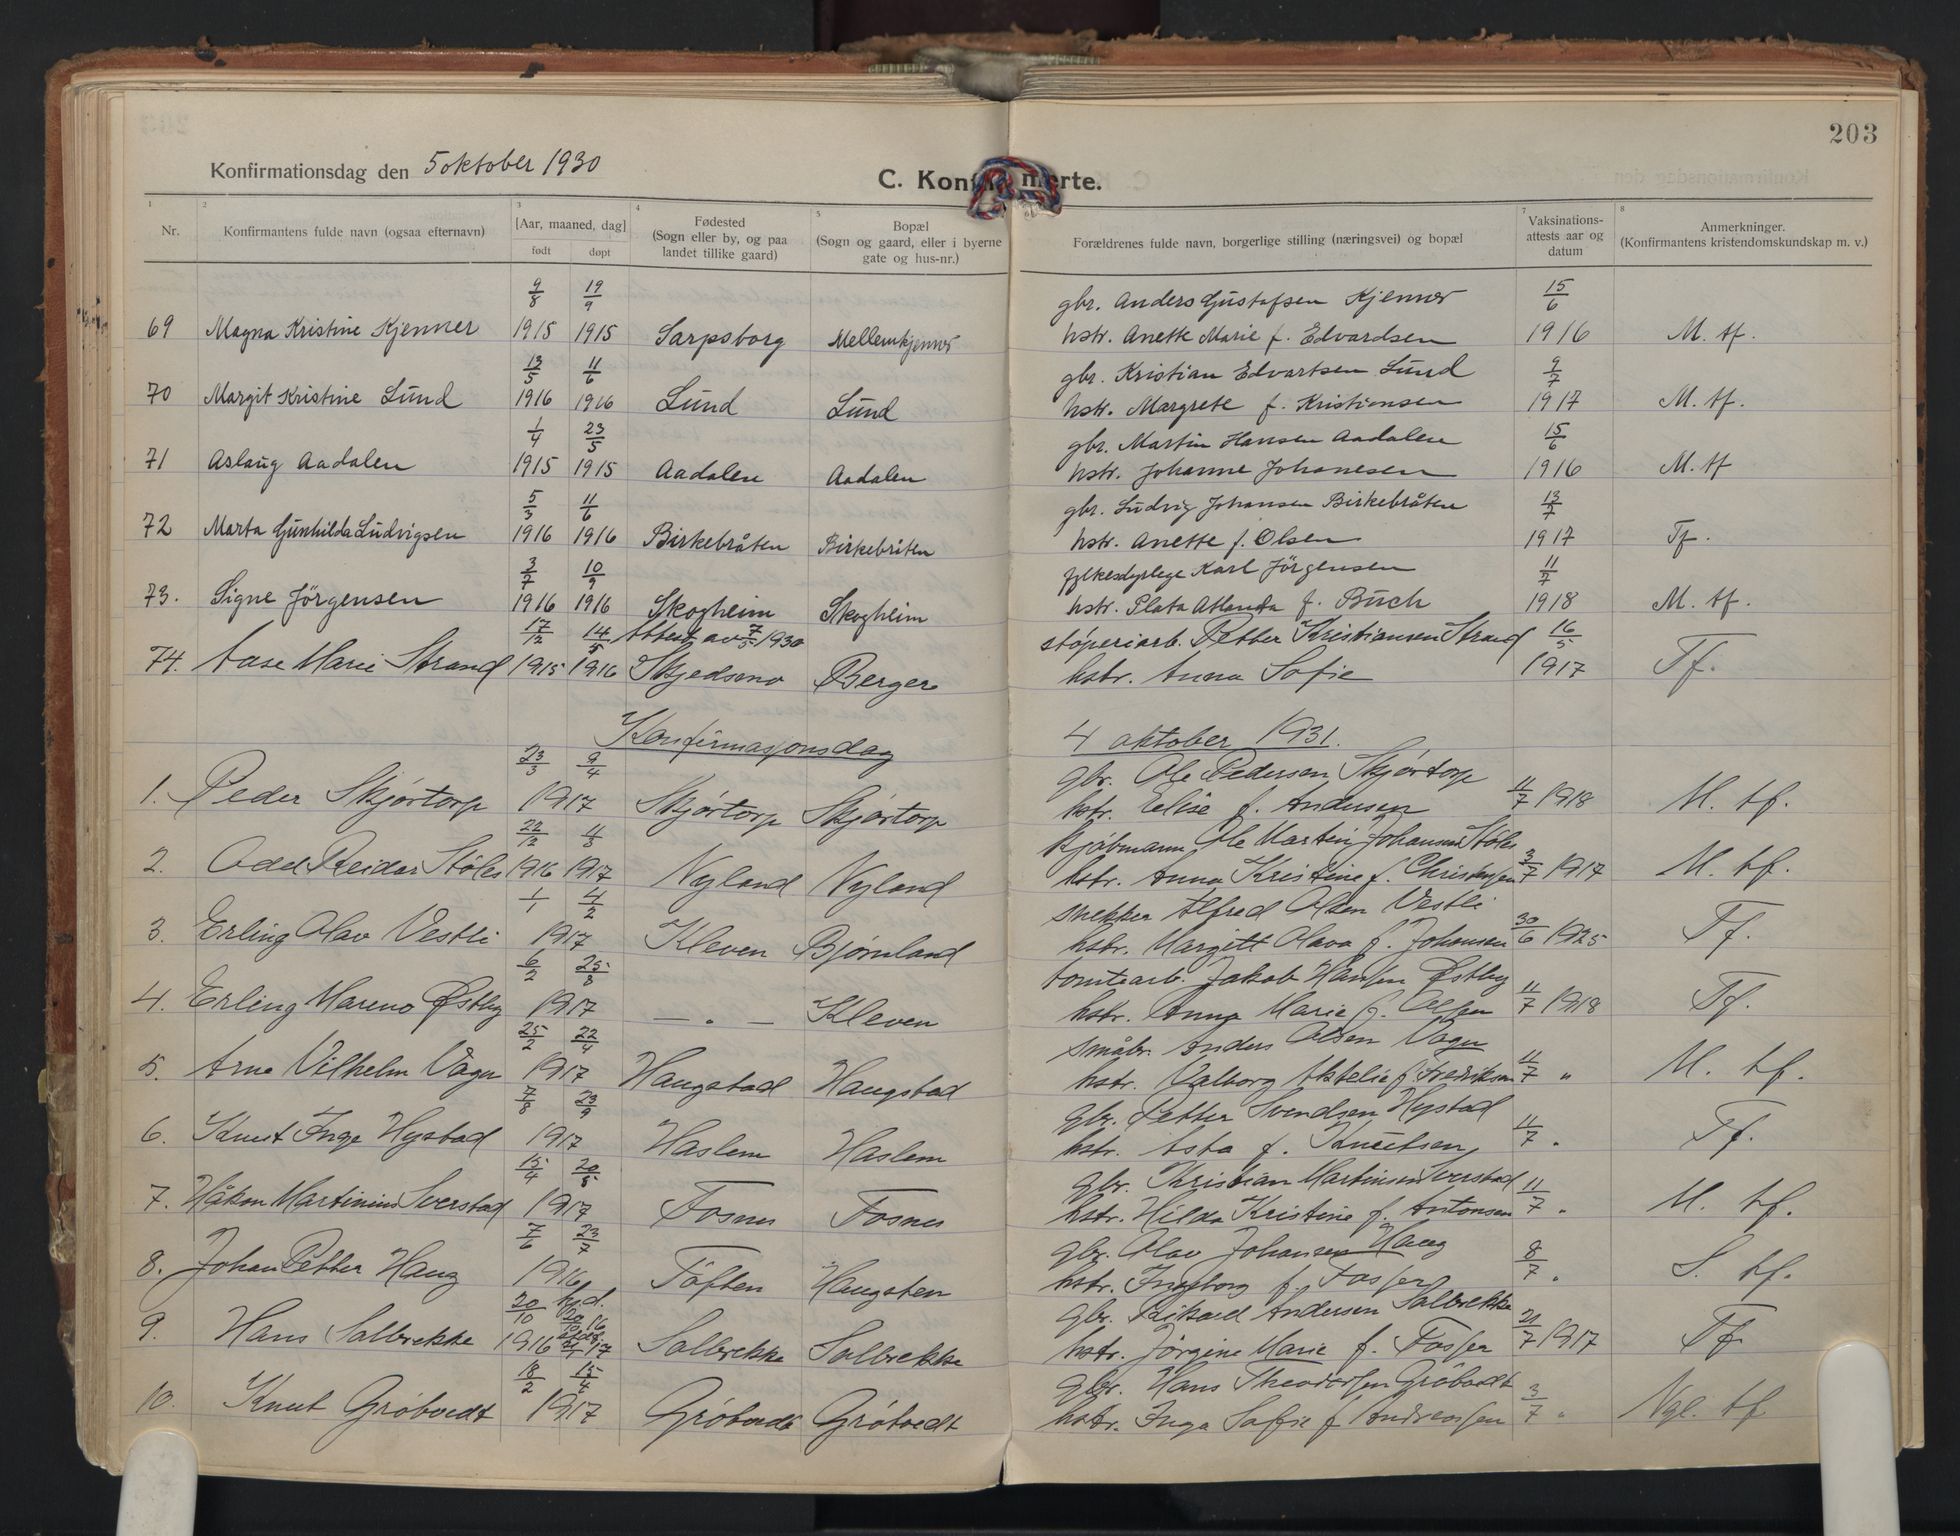 203
Konfirmationsdag den 5 oktober 1930
C. Konfirmerte.
1 2 3 4 5 7 8
Nr. Konfirmantens fulde navn (ogsaa efternavn) [Aar, maaned, dag] født døpt Fødested (Sogn eller by, og paa landet tillike gaard) Bopæl (Sogn og gaard, eller i byerne gate og hus-nr.) Forældrenes fulde navn, borgerlige stilling (næringsvei) og bopæl Vaksinations-attests aar og datum Anmerkninger. (Konfirmantens kristendomskundskap m. v.)
9/8 19/9 gbr. Anders Gustafsen Kjenner 15/6
69 Magna Kristine Kjenner 1915 1915 Sarpsborg Mellemkjenner hstr. Anette Marie f. Edvardsen 1916 M. tf.
13/5 11/6 gbr. Kristian Edvartsen Lund 9/7
70 Margit Kristine Lund 1916 1916 Lund Lund hstr. Margrete f. Kristiansen 1917 M. tf.
1/4 23/5 gbr. Martin Hansen Aadalen 15/6
71 Aslaug Aadalen 1915 1915 Aadalen Aadalen hstr. Johanne Johanesen 1916 M. tf
5/3 11/6 gbr. Ludvig Johansen Birkebråten 13/7
72 Marta Gunhilda Ludvigsen 1916 1916 Birkebråten Birkebråten hstr. Anette f. Olsen 1917 Tf.
3/7 10/9 fylkesdyrlege Karl Jörgensen 11/7
73. Signe Jörgensen 1916 1916 Skogheim Skogheim hstr. Plata Atlanta f. Buch 1918 M. tf.
17/2 14/5 Attest av 7/5 1930 støperiarb. Petter Kristiansen Strand 16/5
74. Aase Marie Strand 1915 1916 Skjedsmo Berger hstr. Anna Sofie 1917 Tf.
Konfirmasjonsdag 4 oktober 1931.
23/3 9/4 gbr. Ole Pedersen Skjørtorp
1. Peder Skjørtorp 1917 Skjørtorp Skjørtorp hstr. Elise f. Andersen 11/7 1918 M. tf.
22/12 4/3 kjøbmann Ole Martin Johansen Støles
2. Odd Reidar Støles 1916 1917 Nyland Nyland hstr. Anna Kristine f. Christensen 3/7 1917 M. tf.
1/1 4/2 snekker Alfred Olsen Vestli
3. Erling Olav Vestli 1917 Kleven Bjørnland hstr. Margitt Olava f. Johansen 30/6 1925 Tf.
6/2 25/8 tomtearb. Jakob Hansen Østby
4. Erling Mareno Østby 1917 — „ — Kleven hstr. Anna Marie f. Olsen 11/7 1918 Tf.
25/2 22/4 småbr. Anders Olsen Vagn
5. Arne Vilhelm Vagn 1917 Haugstad Haugstad hstr. Valborg f. Fredriksen 11/7 „ M. tf.
7/8 23/9 gbr. Petter Svendsen Hystad
6. Knut Inge Hystad 1917 Haslem Haslem hstr. Asta f. Knutsen 11/7 „ Tf.
15/4 20/5 gbr. Kristian Martinsen Sverstad
7. Håkon Martinius Sverstad 1917 Fosnes Fosnes hstr. Hilda Kristine f. Antonsen 11/7 „ M. tf.
7/6 23/7 gbr. Olav Johansen Haug
8. Johan Petter Haug 1916 Töften Haugsten hstr. Ingeborg f. Fosser 8/7 „ S. tf.
20/10 hjd. 20/10 16 gbr. Rikard Andersen Solbrekke
9. Hans Solbrekke 1916 Solbrekke Solbrekke hstr. Jørgine Marie f. Fosser 21/7 1917 Tf
18/2 15/4 gbr. Hans Theodorsen Grøboedt
10. Knut Grøboedt 1917 Grøboedt Grøboedt hstr. Inga Sofie f Andreassen 3/7 „ Ngl. tf